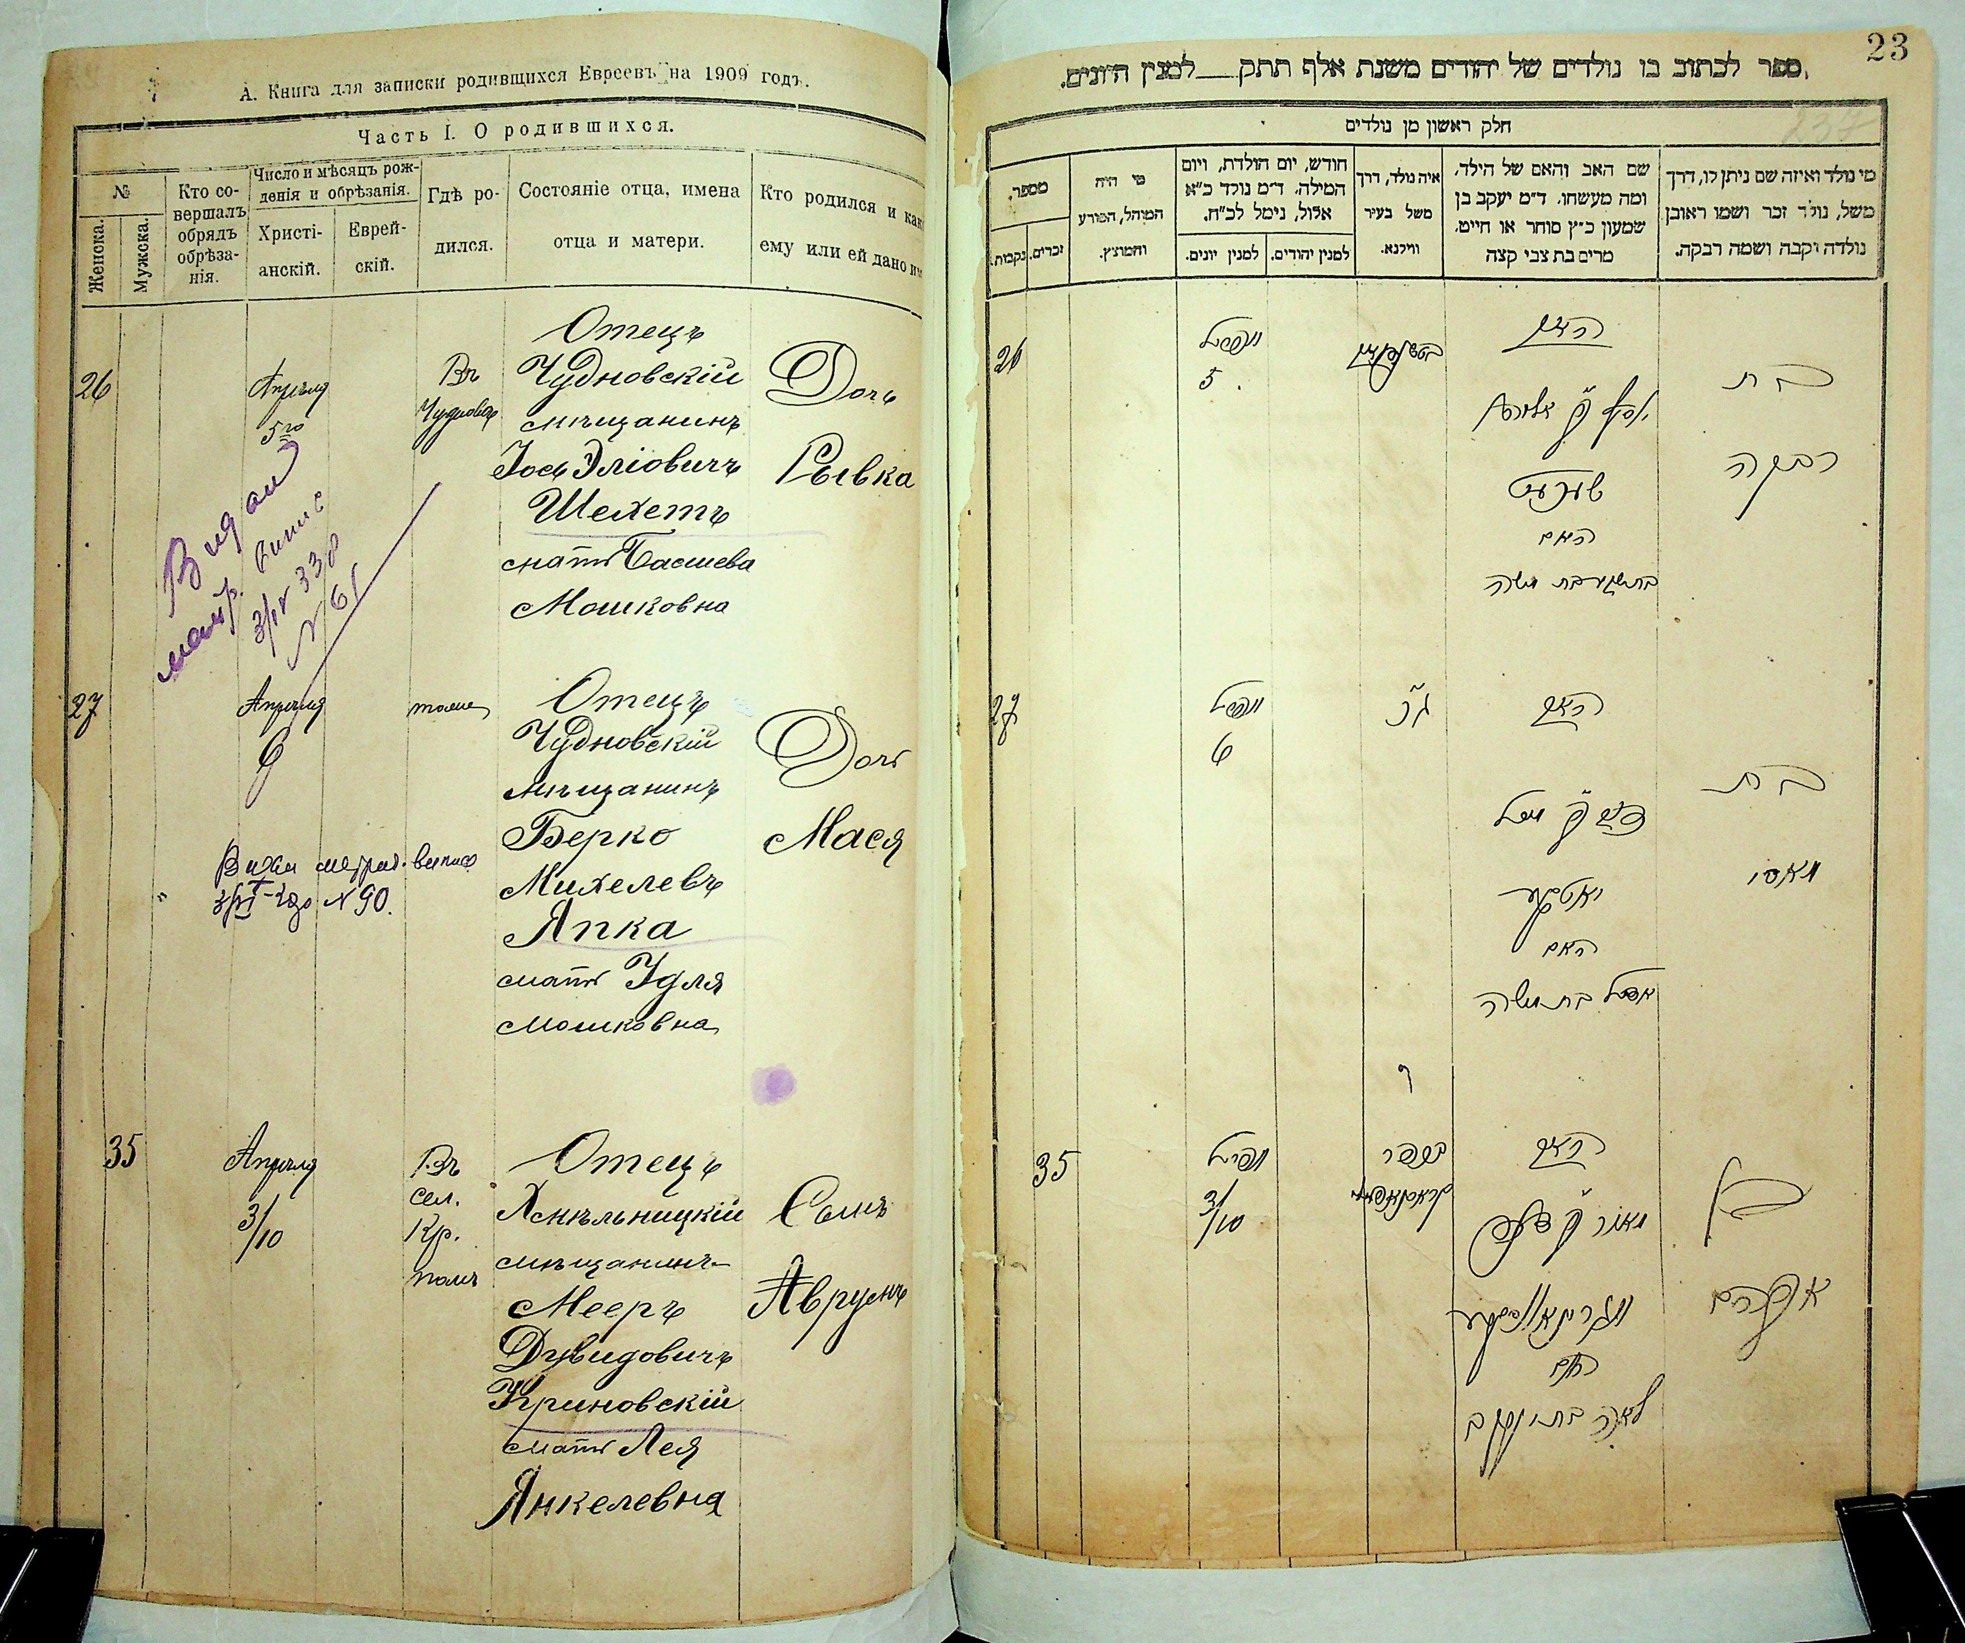 А. Книга для записки родившихся Евреевъ на 1909 годъ.
Часть I. О родившихся.
№
Женска.
Мужска.
Кто со-
вершалъ
обрядъ
обрѣза-
нія.
Число и мѣсяцъ рож-
денія и обрѣзанія.
Христі-
анскій.
Еврей-
скій.
Гдѣ ро-
дился.
Состояніе отца, имена
отца и матери.
Кто родился и как
ему или ей дано
26
Апрѣля
5го
Въ
Чудновѣ
Отецъ
Чудновскій
мѣщанинъ
Іось Эліовичъ
Шехетъ
мать Басшева
Мошковна
Дочь
Рывка
Видан
метр.
338
N 61
27
Апрѣля
6
тоже
Отецъ
Чудновскій
мѣщанинъ
Берко
Михелевъ
Япка
мать Удля
Мошковна
Дочь
Мася
N 90.
35
Апрѣля
3/10
Въ
сел.
Кр.
Отецъ
Хмѣльницкій
мѣщанинъ
Мееръ
Дувидовичъ
Криновскій
мать Лея
Янкелевна
Сынъ
Аврумъ
23
237
ספר לכתוב בו נולדים של יהודים משנת אלף תתק למנין היונים.
חלק ראשון מן נולדים
מספר.
נקבות.
זכרים.
מי היה
המוהל, הפורע
והמוצץ.
חודש, יום הולדת, ויום
המילה. ד״מ נולד כ״א
אלול, נימל לכ״ח.
למנין יונים.
למנין יהודים.
איה נולד, דרך
משל בעיר
ווילנא.
שם האב והאם של הילד,
ומה מעשהו. ד״מ יעקב בן
שמעון כ״ץ סוחר או חייט,
מרים בת צבי קצה
מי נולד ואיזה שם ניתן לו, דרך
משל, נולד זכר ושמו ראובן
נולדה נקבה ושמה רבקה.
26
אפריל
5
האב
האם
בתשבע בת משה
בת
רבקה
27
אפריל
6
האב
האם
בת משה
בת
מאסי
35
אפריל
3/10
האב
מאיר
האם
לאה בת יעקב
בן
אברהם